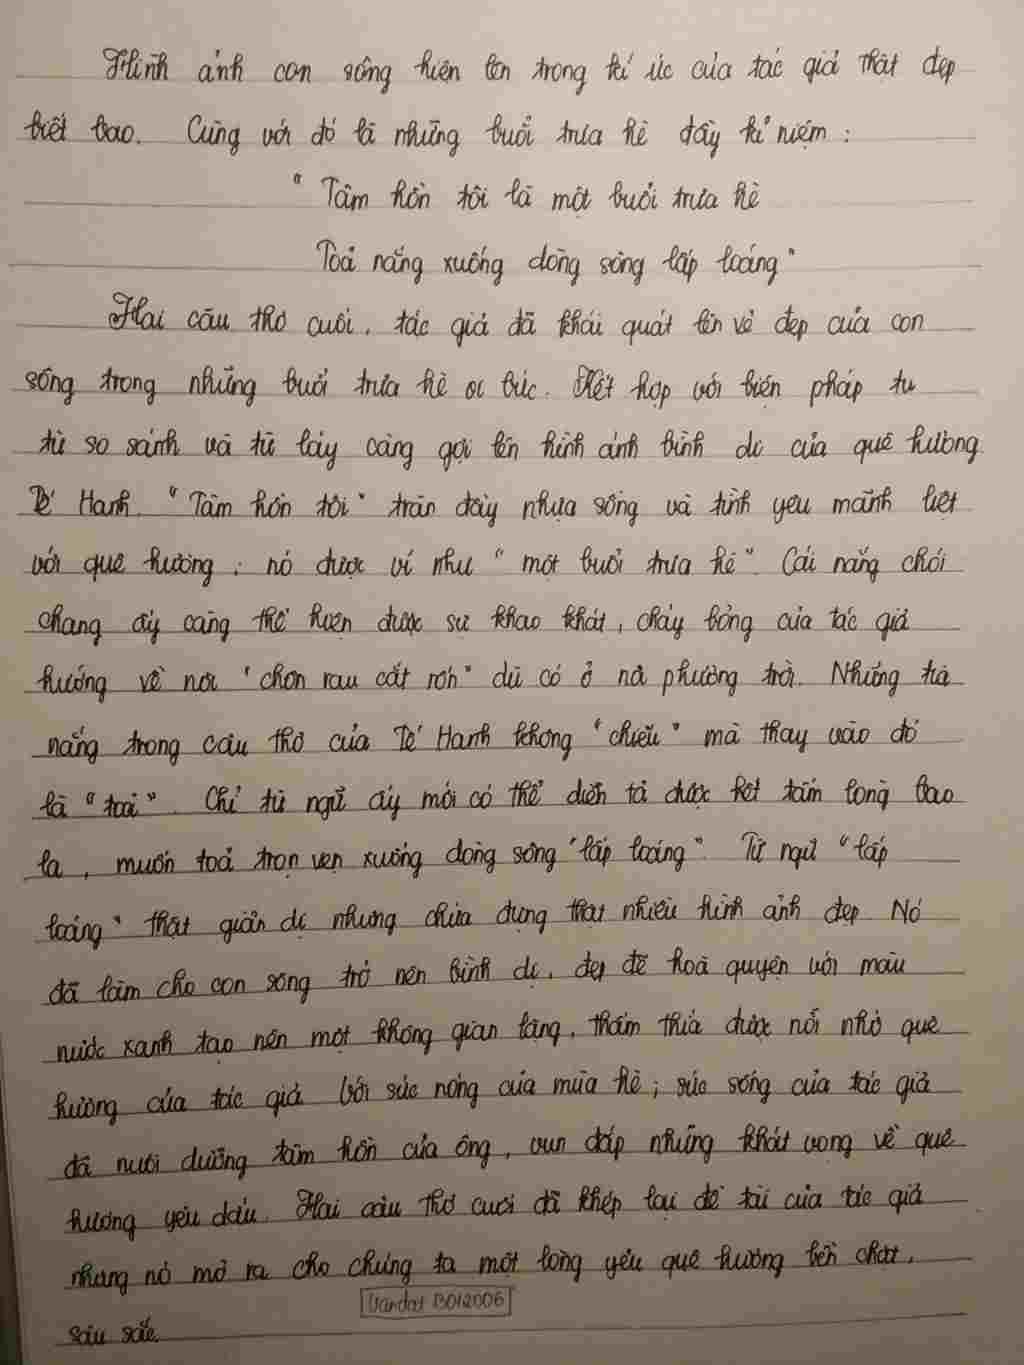 Hình ảnh con sông hiện lên trong kí ức của tác giả thật đẹp
biết bao. Cùng với đó là những buổi trưa hè đầy kỉ niệm :
" Tâm hồn tôi là một buổi trưa hè
Toả nắng xuống dòng sông lấp loáng "
Hai câu thơ cuối, tác giả đã khái quát lên vẻ đẹp của con
sông trong những buổi trưa hè oi bức. Kết hợp với biện pháp tu
từ so sánh và từ láy càng gợi lên hình ảnh bình dị của quê hương
Tế Hanh. " Tâm hồn tôi " tràn đầy nhựa sống và tình yêu mãnh liệt
với quê hương ; nó được ví như " một buổi trưa hè ". Cái nắng chói
chang ấy càng thể hiện được sự khao khát, cháy bỏng của tác giả
hướng về nơi " chôn rau cắt rốn " dù có ở nơi phương trời. Những tia
nắng trong câu thơ của Tế Hanh không " chiếu " mà thay vào đó
là " toả ". Chỉ từ ngữ ấy mới có thể diễn tả được hết tấm lòng bao
la, muốn toả trọn vẹn xuống dòng sông " lấp loáng ". Từ ngữ " lấp
loáng " thật giản dị nhưng chứa đựng thật nhiều hình ảnh đẹp. Nó
đã làm cho con sông trở nên bình dị, đẹp đẽ hoà quyện với màu
nước xanh tạo nên một không gian lặng, thấm thía được nỗi nhớ quê
hương của tác giả. Với sức nóng của mùa hè ; sức sống của tác giả
đã nuôi dưỡng tâm hồn của ông, vun đắp những khát vọng về quê
hương yêu dấu. Hai câu thơ cuối đã khép lại đề tài của tác giả
nhưng nó mở ra cho chúng ta một lòng yêu quê hương bền chặt,
sâu sắc.
Vandat 13012006